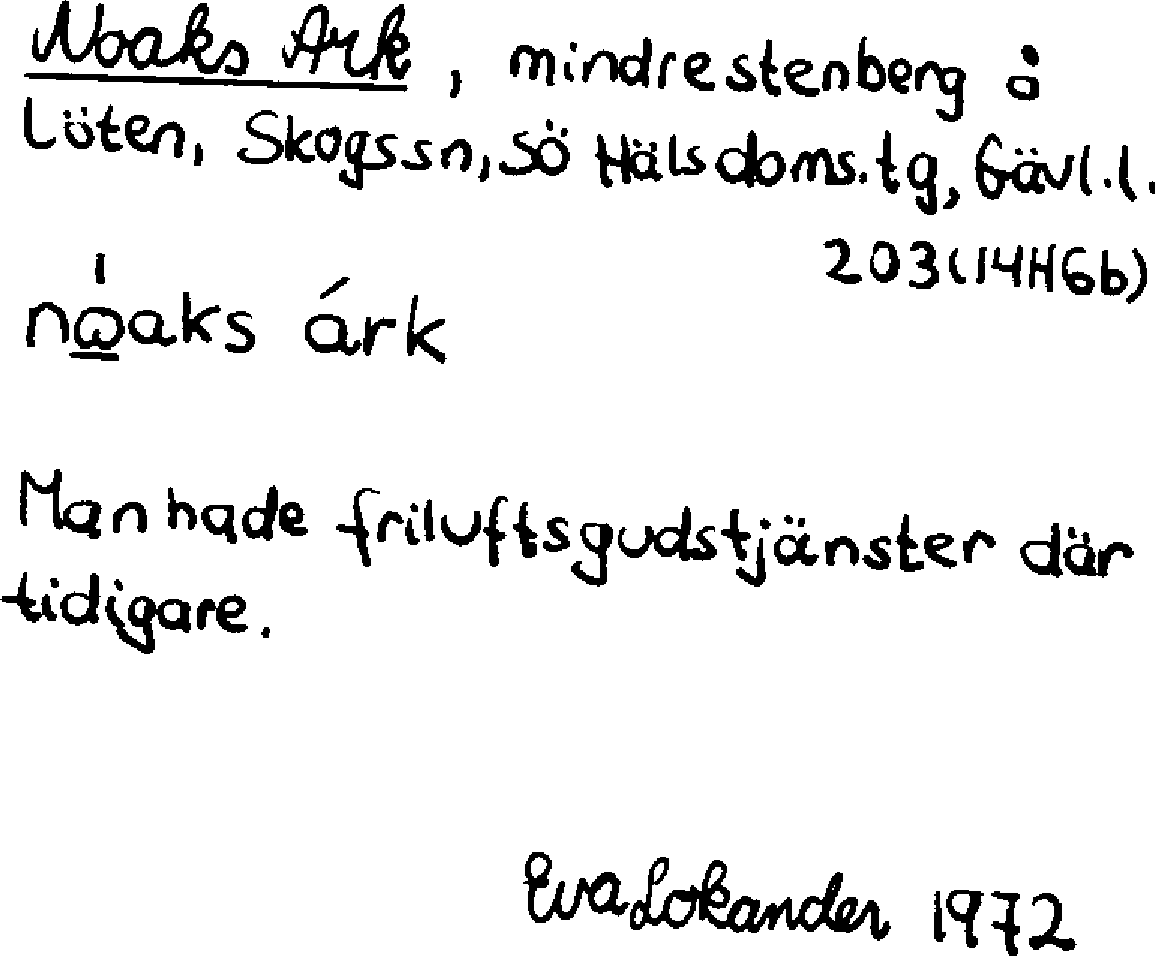 Noaks Ark, mindre stenberg å
Löten, Skogs sn, Sö Häls doms. tg, Gävl. l.
203 (14H6b)
nώ̲aks árk
Man hade friluftsgudstjänster där
tidigare.
Eva Lokander 1972